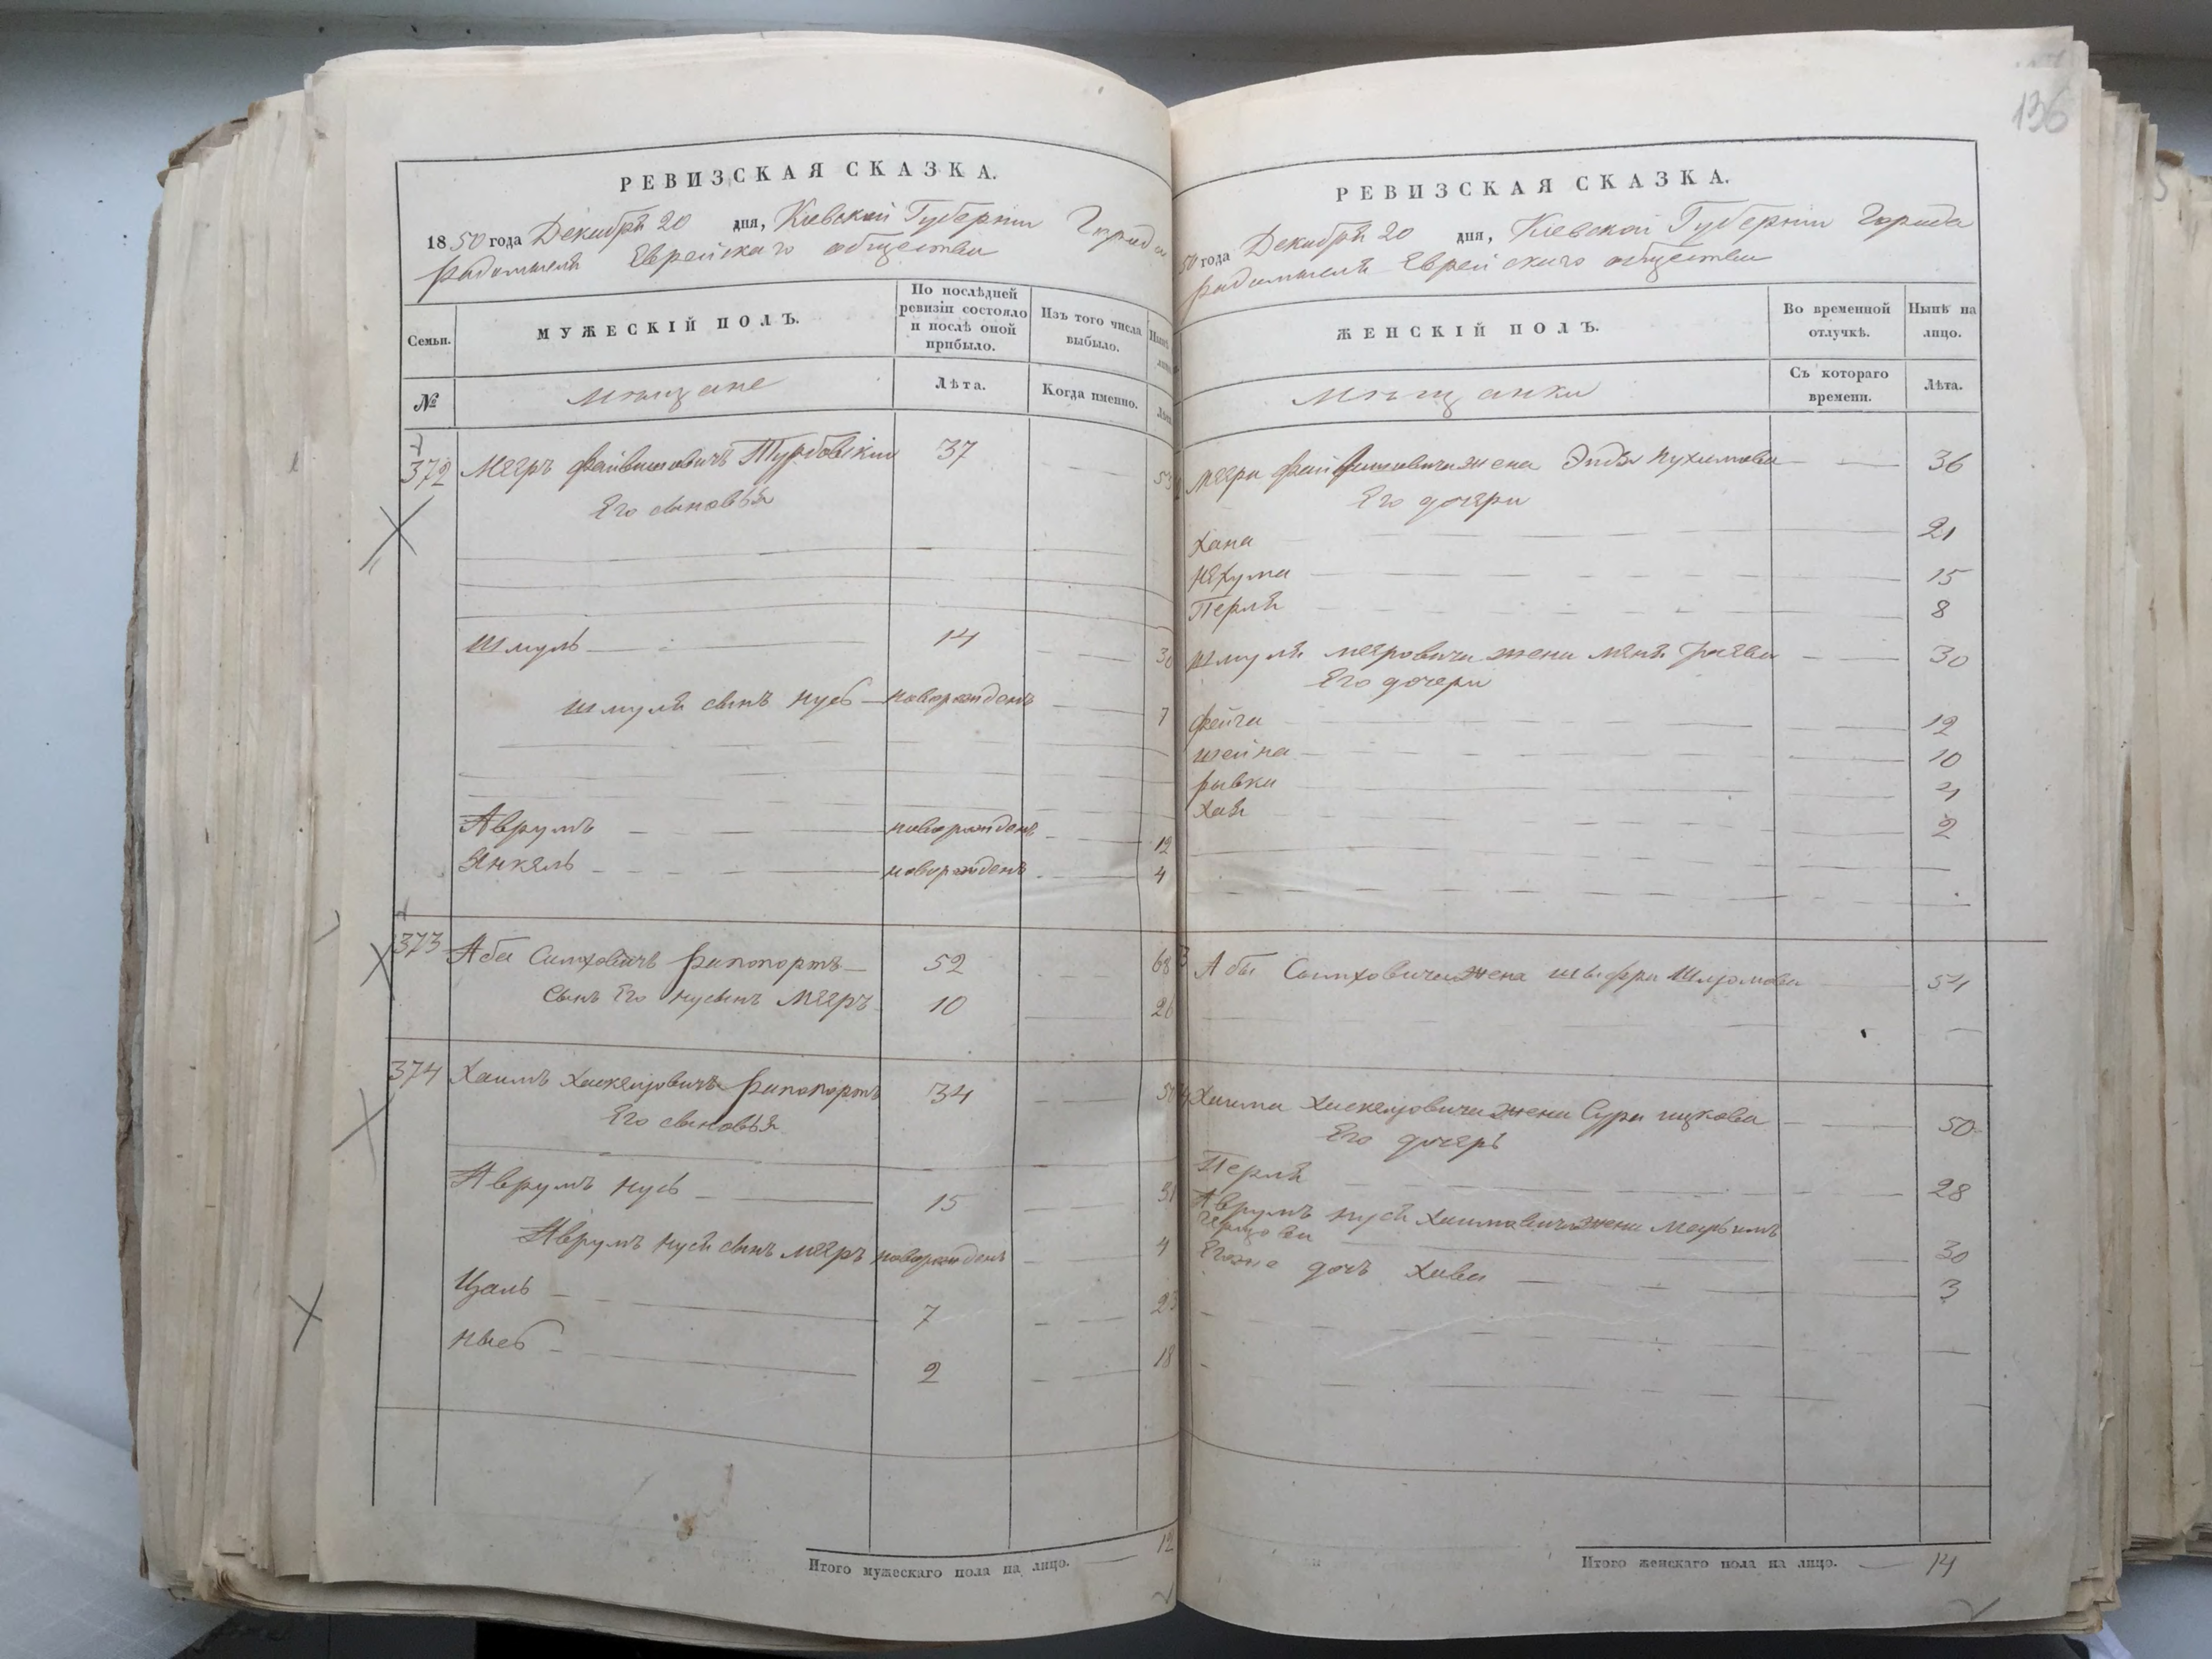 РЕВИЗСКАЯ СКАЗКА.
1850 года Декабря 20 дня, Киевской Губернии Города
Радомысля Еврейскаго общества
Семьи.
МУЖЕСКІЙ ПОЛЪ.
По послѣдней ревизіи состояло и послѣ оной прибыло.
Изъ того числа выбыло.
№
мѣщане
Лѣта.
Когда именно.
372 Мееръ Файвишовичъ Турбовскій 37 53
Его сыновья
Шмуль 14 30
Шмуля сынъ Нусь новорожденъ 7
Аврумъ новорожденъ 12
Янкель новорожденъ 4
373 Аба Симховичъ Рапопортъ 52 68
Сынъ Его Нусынъ Мееръ 10 26
374 Хаимъ Хаскелевичъ Рапопортъ 34 50
Его сыновья
Аврумъ Нусь 15 31
Аврумъ Нуся сынъ Мееръ новорожденъ 4
Цаль 7 23
2 18
Итого мужескаго пола на лицо. 12
136
РЕВИЗСКАЯ СКАЗКА.
50 года Декабря 20 дня, Киевской Губернии Города
Радомысля Еврейскаго общества
ЖЕНСКІЙ ПОЛЪ.
Во временной отлучкѣ.
Нынѣ на лицо.
мѣщанки
Съ котораго времени.
Лѣта.
Меера Файвишовича жена Нухимова 36
Его дочери
Хана 21
Нехума 15
Перля 8
Шмуля Мееровича жена 30
Его дочери
Фейга 12
Шейна 10
Рывка 4
Хая 2
Абы Симховича жена Шифра Шлomoва 54
Хаима Хаскелевича жена Сура Ицкова 50
Его дочерь
Перля 28
Аврумъ Нуся Хаимовича жена
30
Его же дочь Хава 3
Итого женскаго пола на лицо. 14